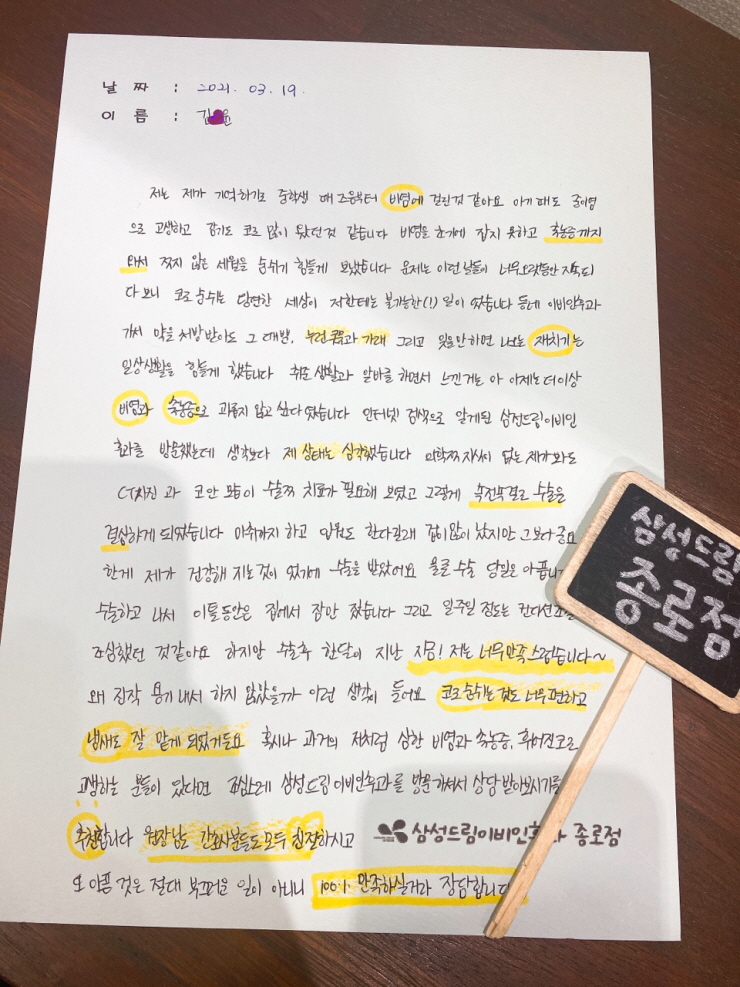 날 짜 : 2021. 03. 19.
이 름 : 김 윤
저는 제가 기억하기로 중학생 때 즈음부터 비염에 걸린것 같아요 아기 때도 중이염
으로 고생하고 감기도 코로 많이 왔던것 같습니다 비염을 초기에 잡지 못하고 축농증까지
돼서 짧지 않은 세월을 숨쉬기 힘들게 보냈습니다 문제는 이런 날들이 너무오랫동안 지속되
다 보니 코로 숨쉬는 당연한 세상이 저한테는 불가능한(!) 일이 었습니다 동네 이비인후과
가서 약을 처방 받아도 그 때뿐, 누런 콧물과 가래 그리고 잊을만하면 나오는 재치기는
일상생활을 힘들게 했습니다 취준 생활과 알바를 하면서 느낀거는 아 이제는 더이상
비염과 축농증으로 괴롭지 않고 싶다 였습니다 인터넷 검색으로 알게된 삼성드림이비인
후과를 방문했는데 생각보다 제 상태는 심각했습니다 의학쪽 지식이 없는 제가 봐도
CT사진 과 코 안 모습이 수술쪽 치료가 필요해 보였고 그렇게 속전속결로 수술을
결심하게 되었습니다 마취까지 하고 입원도 한다길래 겁이많이 났지만 그보다 중요
한게 제가 건강해 지는것이 었기에 수술을 받았어요 물론 수술 당일은 아픕니
수술하고 나서 이틀동안은 집에서 잠만 잤습니다 그리고 일주일 정도는 컨디션
조심했던 것같아요 하지만 수술후 한달이 지난 지금! 저는 너무만족스럽습니다~
왜 진작 용기내서 하지 않았을까 이런 생각이 들어요 코로 숨쉬는것도 너무 편하고
냄새도 잘 맡게 되었거든요 혹시나 과거의 저처럼 심한 비염과 축농증, 휘어진코로
고생하는 분들이 있다면 조심스레 삼성드림이비인후과를 방문 가셔서 상담 받아보시기를
추천합니다 원장님도 간호사분들도모두 친절하시고
또 아픈 것은 절대 부끄러운 일이 아니니 100% 만족하실거라 장담합니다
삼성드림이비인후과 종로점
삼성드림
종로점